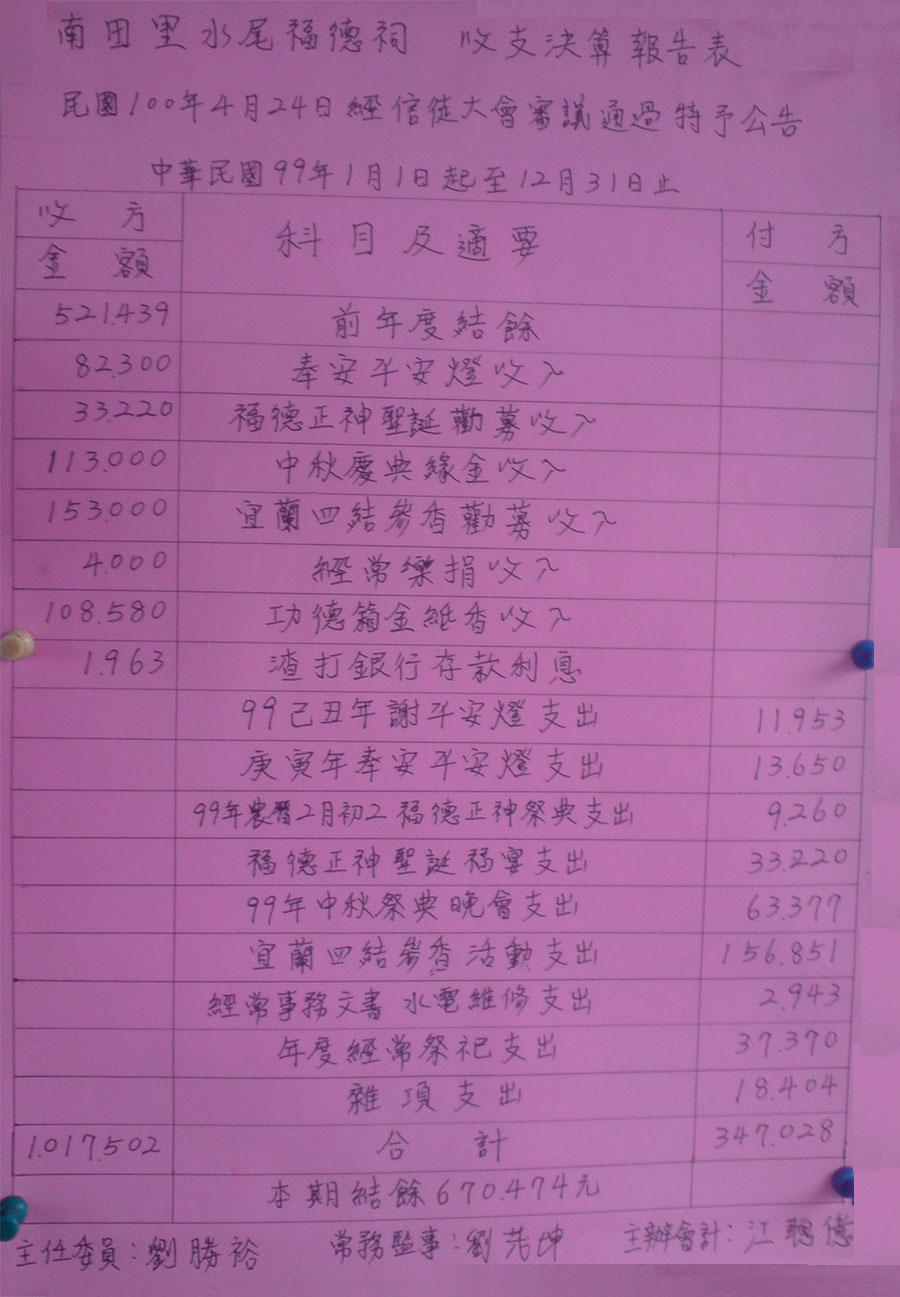 南田里水尾福德祠 收支決算報告表
民國100年4月24日經信徒大會審議通過特予公告
中華民國99年1月1日起至12月31日止
收方 科目及適要 付方
金額 金額
521.439 前年度結餘
82.300 奉安平安燈收入
33.220 福德正神聖誕勸募收入
113.000 中秋慶典緣金收入
153.000 宜蘭四結參香勸募收入
4.000 經常樂捐收入
108.580 功德箱金紙香收入
1.963 渣打銀行存款利息
99己丑年謝平安燈支出 11.953
庚寅年奉安平安燈支出 13.650
99年農曆2月初2福德正神祭典支出 9.260
福德正神聖誕福宴支出 33.220
99年中秋祭典晚會支出 63.377
宜蘭四結參香活動支出 156.851
經常事務文書水電維修支出 2.943
年度經常祭祀支出 37.370
雜項支出 18.404
1.017.502 合計 347.028
本期結餘670.474元
主任委員:劉勝裕 常務監事:劉坤 主辦會計:江聰億